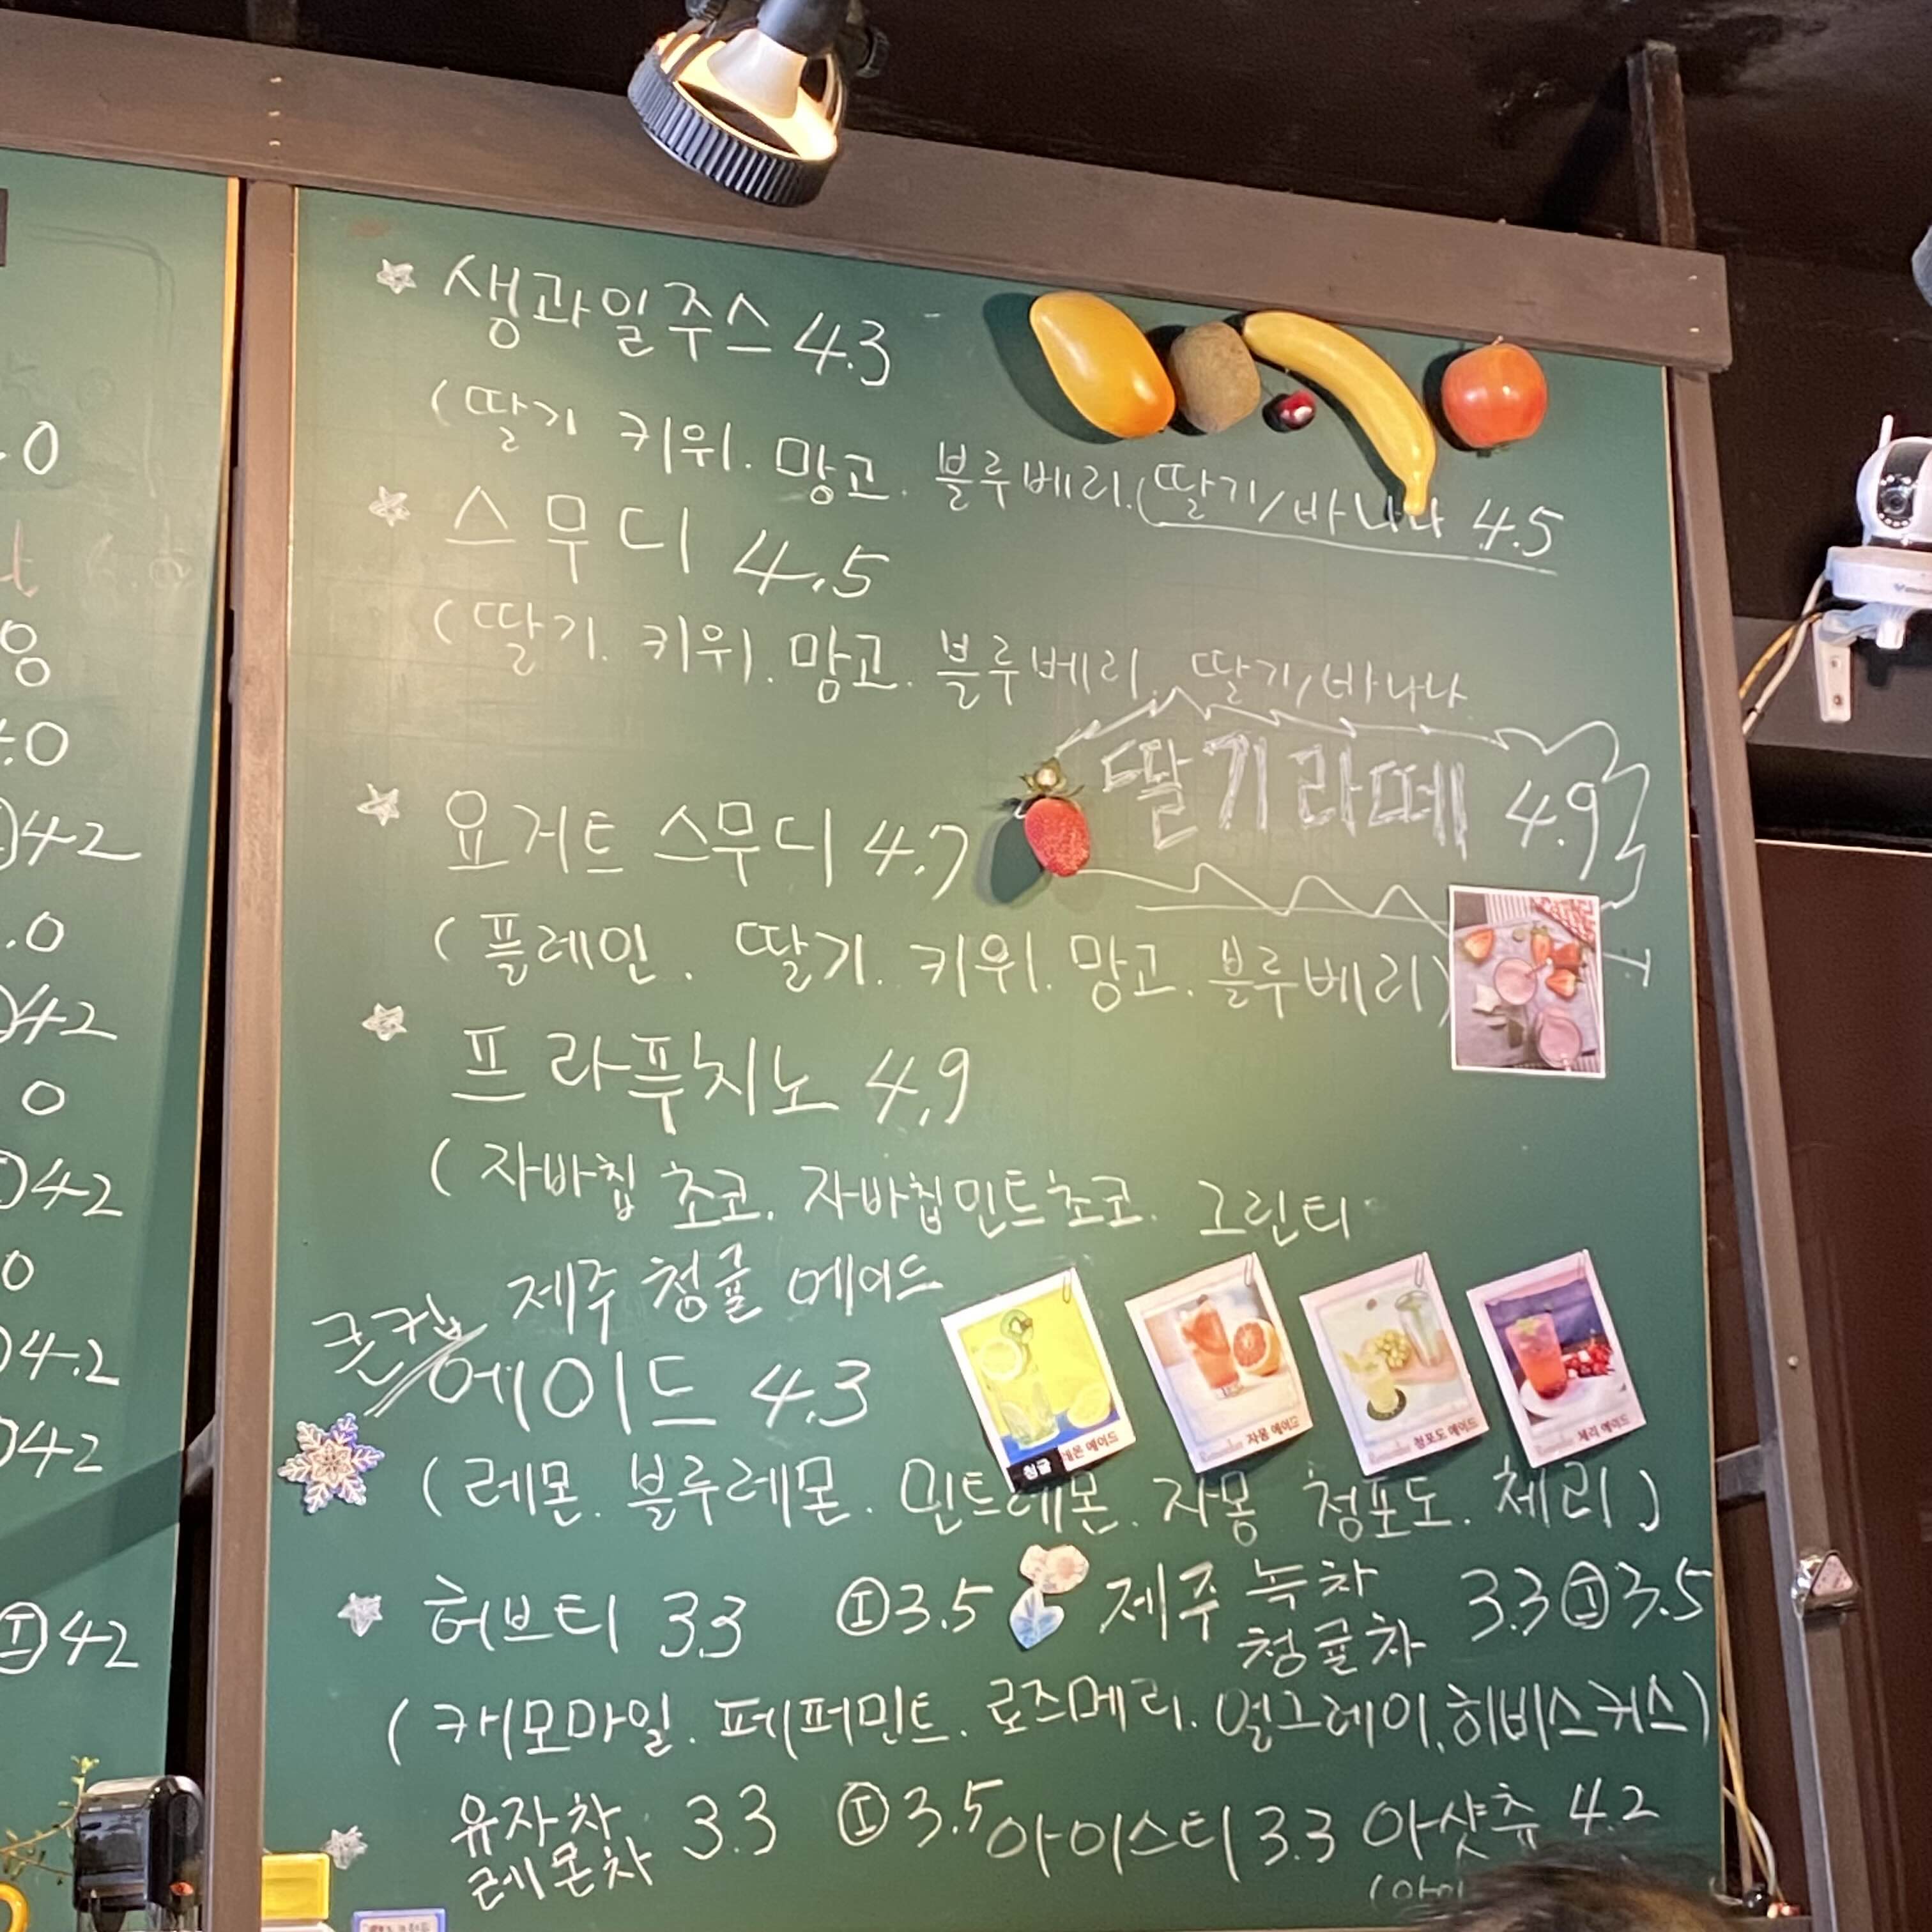 생과일주스 4.3
(딸기 키위. 망고. 블루베리. (딸기/바나나 4.5
스무디 4.5
(딸기. 키위. 망고. 블루베리. 딸기/바나나
딸기라떼 4.9
요거트 스무디 4.7
(플레인. 딸기. 키위. 망고. 블루베리)
프라푸치노 4.9
(자바칩 초코. 자바칩민트초코. 그린티
제주 청귤 에이드
큰컵
에이드 4.3
청귤 레몬 에이드
자몽 에이드
청포도 에이드
체리 에이드
(레몬. 블루레몬. 민트레몬. 자몽 청포도. 체리)
허브티 3.3 Ⓘ3.5 제주 녹차 청귤차 3.3 Ⓘ3.5
(캐모마일. 페퍼민트. 로즈메리. 얼그레이. 히비스커스)
유자차 레몬차 3.3 Ⓘ3.5 아이스티 3.3 아샷츄 4.2
.0
8
.0
42
.0
42
0
42
0
4.2
42
Ⓘ42